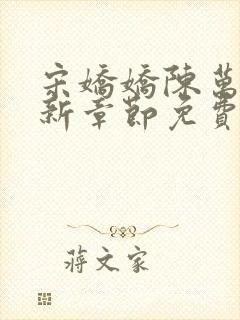 宋嬌嬌陳萬
新章節免費
蔣文家